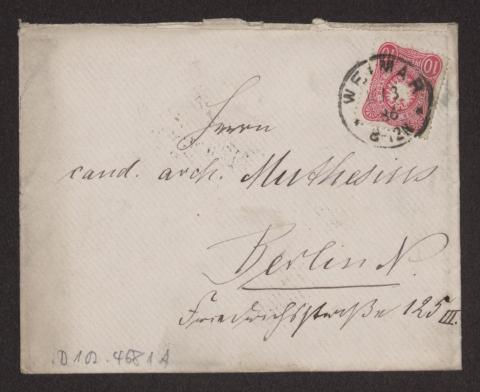 10 10
WEIMAR
3
86
8-12N
Herrn
cand. arch. Muthesius
Berlin N.
Friedrichsstraße 125 III.
D 102-4681 A